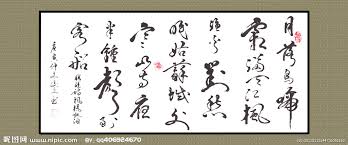 月落烏啼
霜滿天江楓
漁火對愁
眠姑蘇城外
寒山寺夜
半鐘聲到
客船
昵图网 www.nipic.com BY:QQ406924670